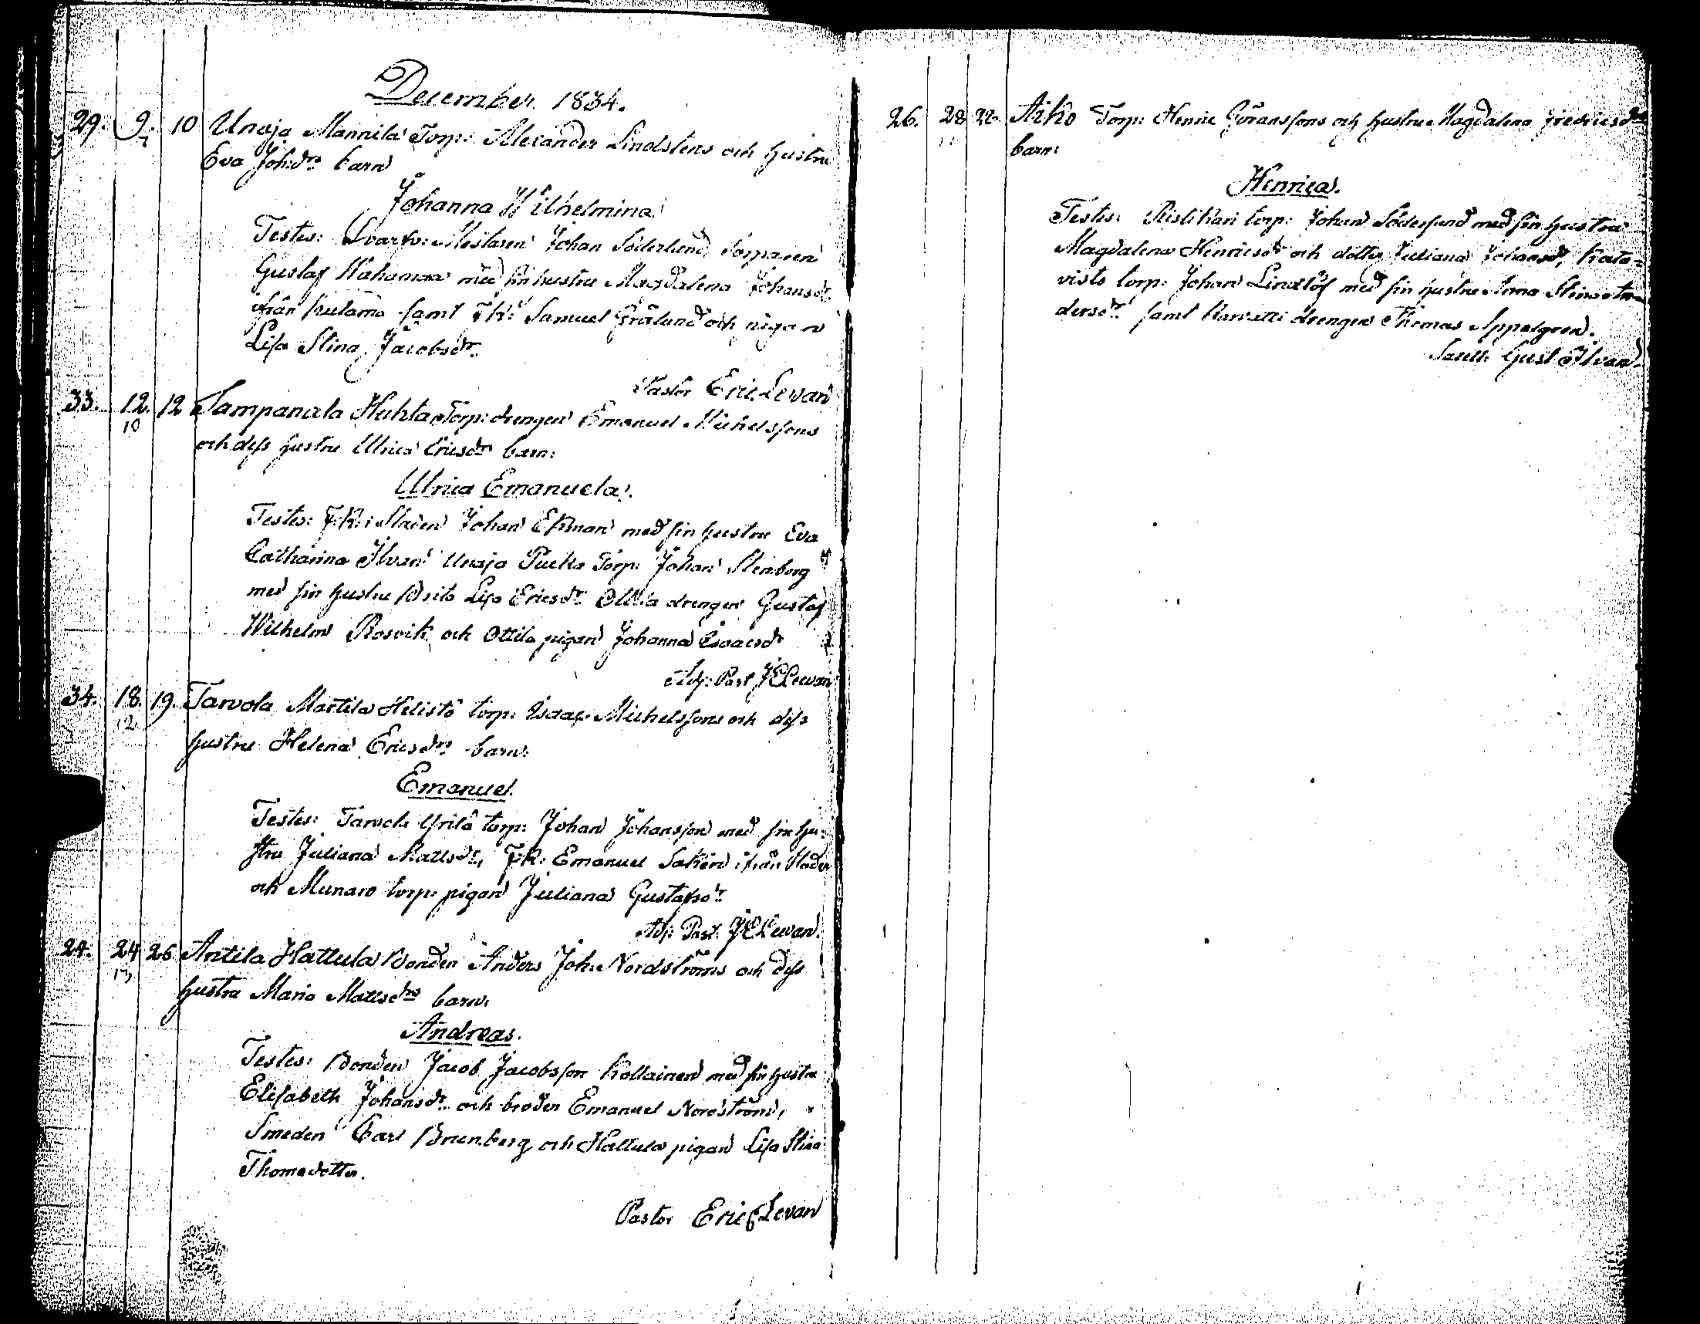 December 1834.
29. 9. 10 Unaja Mannila Torp: Alexander Lindstens och hustru
7
Eva Johsdrs barn
Johanna Wilhelmina.
Testes: Mästaren Johan Söderlund, Torparen
Gustaf med sin hustru Magdalena Johansdr
från samt Samuel Grälund och pigan
Lisa Stina Jacobsdr.
Pastor Eric Levan
33. 12. 12 Sampanala Huhta Torp: drengen Emanuel Michelssons
10
och dess hustru Ulrica Ericsdrs barn:
Ulrica Emanuela.
Testes: F.K: Johan Ekman med sin hustru Eva
Catharina Ilvan Unaja Pucka Torp: Johan Stenborg
med sin hustru Brita Lisa Ericsdr Ottila drengen Gustaf
Wilhelm Rosvik och Ottila pigan Johanna Isaacsdr
Adj: Past J E Levan
34. 18. 19. Tarvola Martila Helistö torp: Isaac Michelssons och dess
12
hustru Helena Ericsdrs barn:
Emanuel.
Testes: Tarvola Yrilä torp: Johan Johansson med sin hu-
stru Juliana Mattsdr, F.K: Emanuel Sakén ifrån Staden
och Munaro torp: pigan Juliana Gustafsdr
Adj: Past. J E Levan.
24. 24 26 Antila Hattula Bonden Anders Joh: Nordströms och dess
hustru Maria Mattsdrs barn:
Andreas.
Testes: Bonden Jacob Jacobsson Kollainen med sin hustru
Elisabeth Johansdr och broder Emanuel Nordström,
Smeden Carl Brunberg och Hattula pigan Lisa Stina
Thomsdotter.
Pastor Eric Levan
26. 28 22. Aiko Torp: Henric Göranssons och hustru Magdalena Fredricsdrs
barn:
Henrica.
Testes: Ristikari torp: Johan Söderlund med sin hustru
Magdalena Henricsdr och dotter Juliana Johansdr, Kata-
visto torp: Johan Lindlöf med sin hustru Anna Stina An-
dersdr samt drengen Thomas Appelgren.
Gust Ilvan.